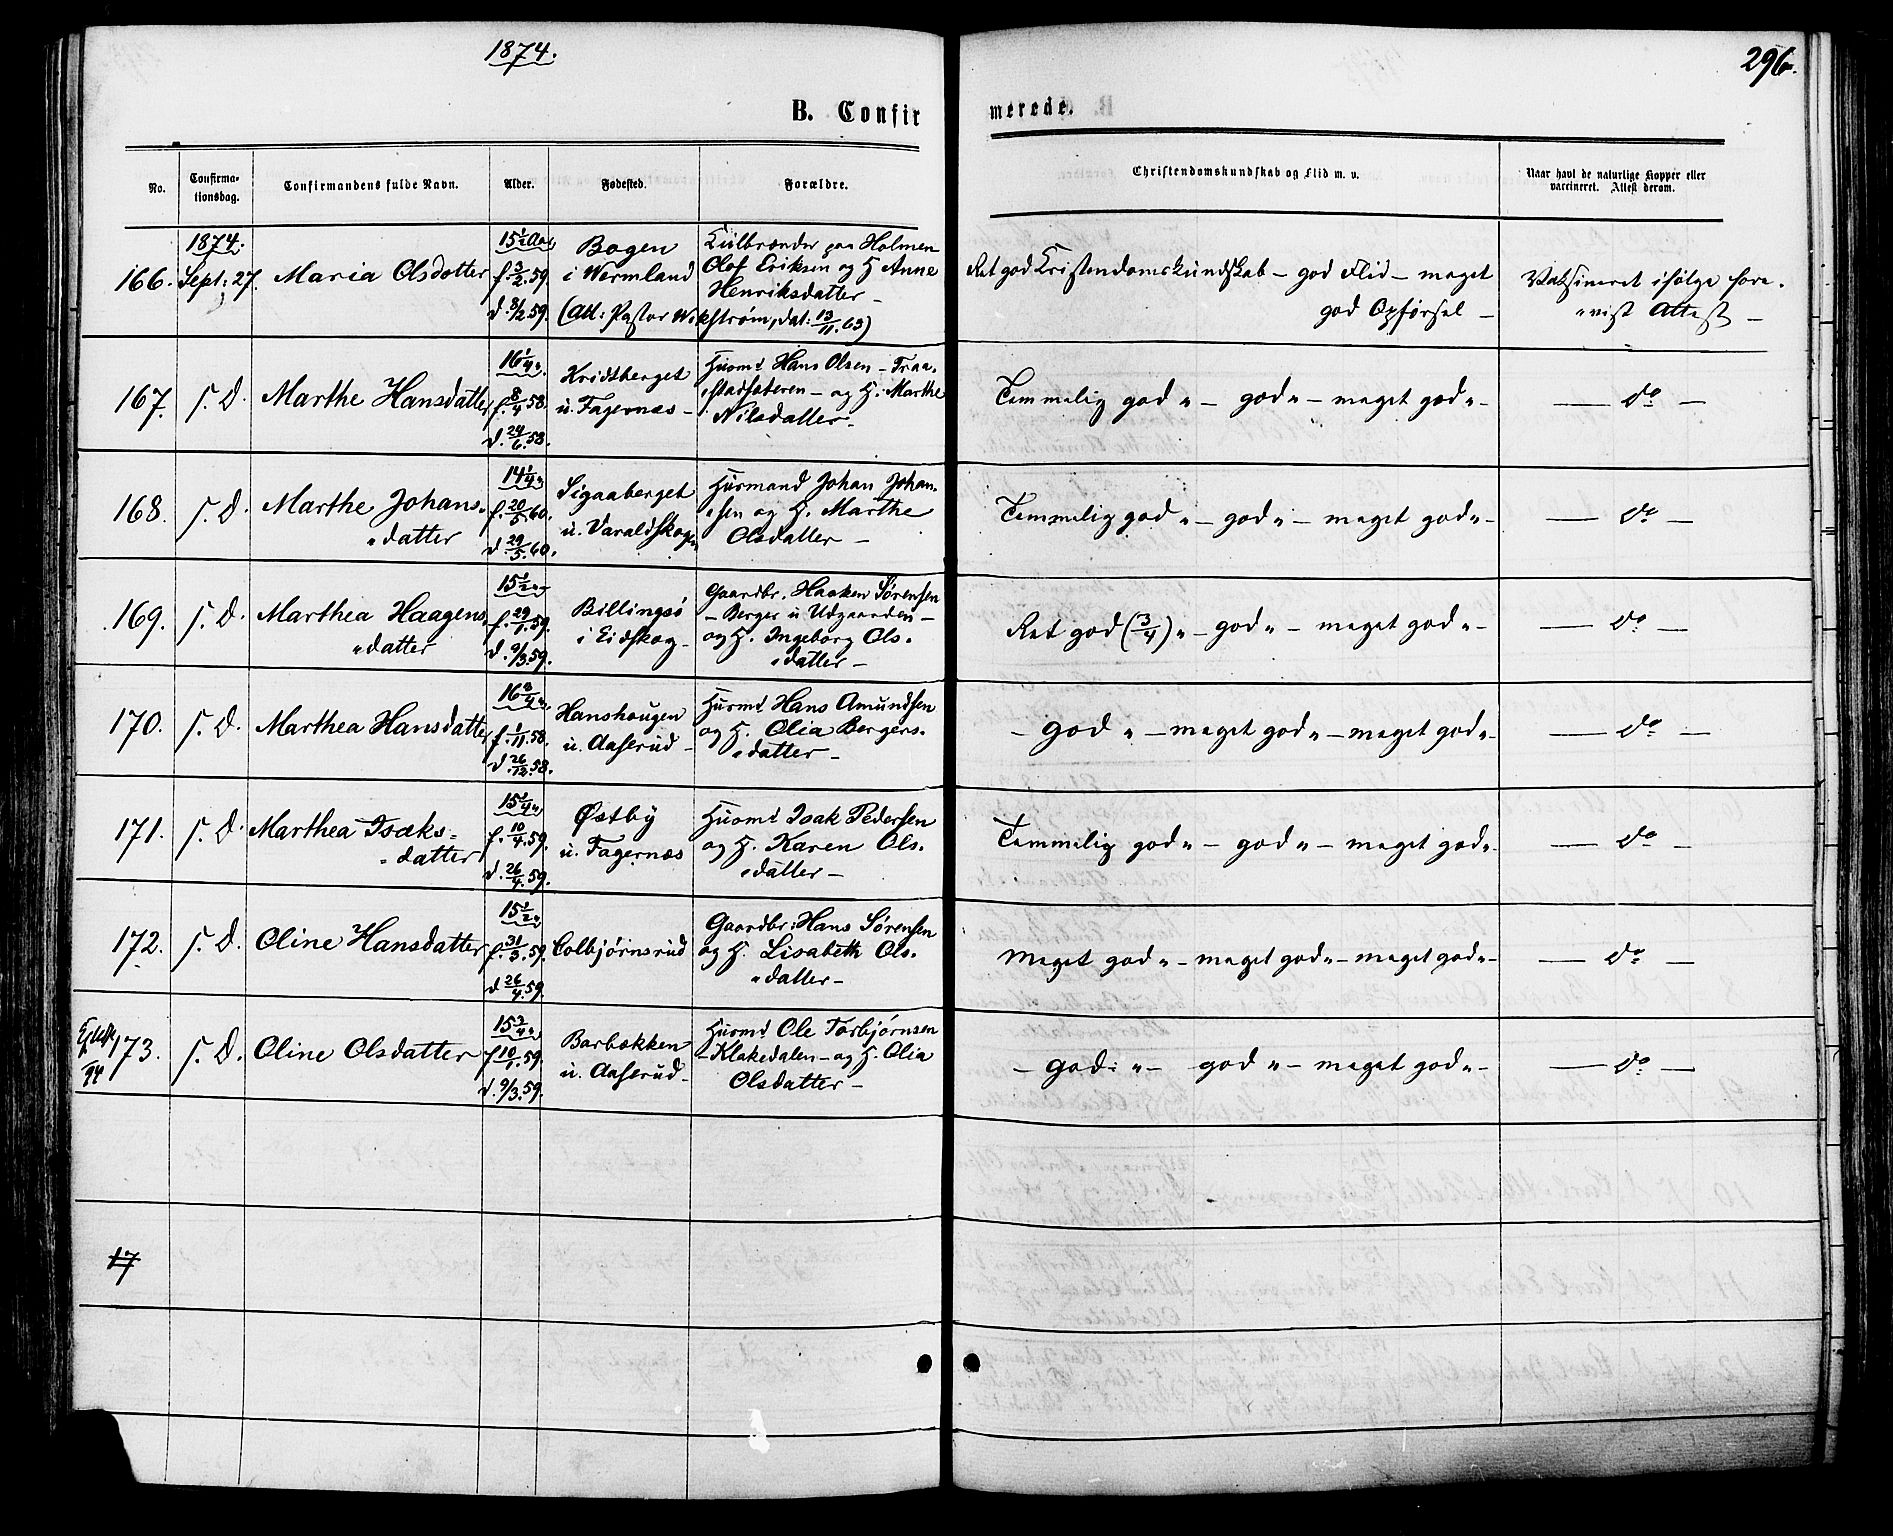 1874.
296.
B. Confirmerede.
No.
Confirmationsdag.
Confirmandens fulde Navn.
Alder.
Fødested.
Forældre.
Christendomskundskab og Flid m. v.
Naar havt de naturlige Kopper eller vaccineret. Attest derom.
1874.
166. Sept: 27. Maria Olsdotter
15 1/2 Aar
f. 3/2.59.
d. 8/2.59.
Bogen
i Wermland
(Att: Pastor Wikstrøm, dat: 13/11.63)
Kulbrænder paa Holmen
Olof Eriksen og H. Anne
Henriksdatter –
Ret god Kristendomskundskab – god Flid – meget
god Opførsel –
Vaksineret ifølge fore-
„vist Attest –
167. S. D. Marthe Hansdatter
16 1/4 „
f. 8/4 58.
d. 24/6.58.
Kridtberget
u. Fagernæs –
Husmd Hans Olsen – Fraa-
„stadsæteren – og H. Marthe
Nilsdatter –
Temmelig god „ – god „ – meget god „ –
— do —
168. S. D. Marthe Johans-
„datter
14 1/4 „
f. 20/5.60.
d. 29/5.60.
Sigaaberget
u. Varaldskogen
Husmand Johan Johan-
„sen og H. Marthe
Olsdatter –
Temmelig god „ – god „ – meget god „ –
— do —
169. S. D. Marthea Haagens-
„datter
15 1/2 „
f. 29/1.59.
d. 9/3.59.
Billingsö
i Eidskog –
Gaardbr. Haaken Sørensen
– Berger u Udgaarden –
og H. Ingeborg Ols-
„datter –
Ret god (3/4) „ – god „ – meget god „ –
— do —
170. S. D. Marthea Hansdatter
16 3/4 „
f. 1/11.58.
d. 26/12.58.
Hanshougen
u. Aaserud –
Husmd Hans Amundsen
og H. Olia Bergers-
„datter –
– god „ – meget god „ – meget god „ –
— do —
171. S. D. Marthea Isaks-
„datter
15 1/4 „
f. 10/4.59.
d. 26/4.59.
Østby
u. Fagernæs
Husmd Isak Pedersen
og H. Karen Ols-
„datter –
Temmelig god „ – god „ – meget god „ –
— do —
172. S. D. Oline Hansdatter
15 1/2 „
f. 31/3.59.
d. 26/4.59.
Colbjørnsrud
Gaardbr: Hans Sørensen
og H. Lisabeth Ols-
„datter –
Meget god „ – meget god „ – meget god „ –
— do —
173. S. D. Oline Olsdatter
15 3/4 „
f. 10/1.59.
d. 9/3.59.
Barbækken
u. Aaserud –
Husmd Ole Torbjørnsen
– Klakedalen – og H. Olia
Olsdatter –
– god: „ – god „ – meget god „ –
— do —
17